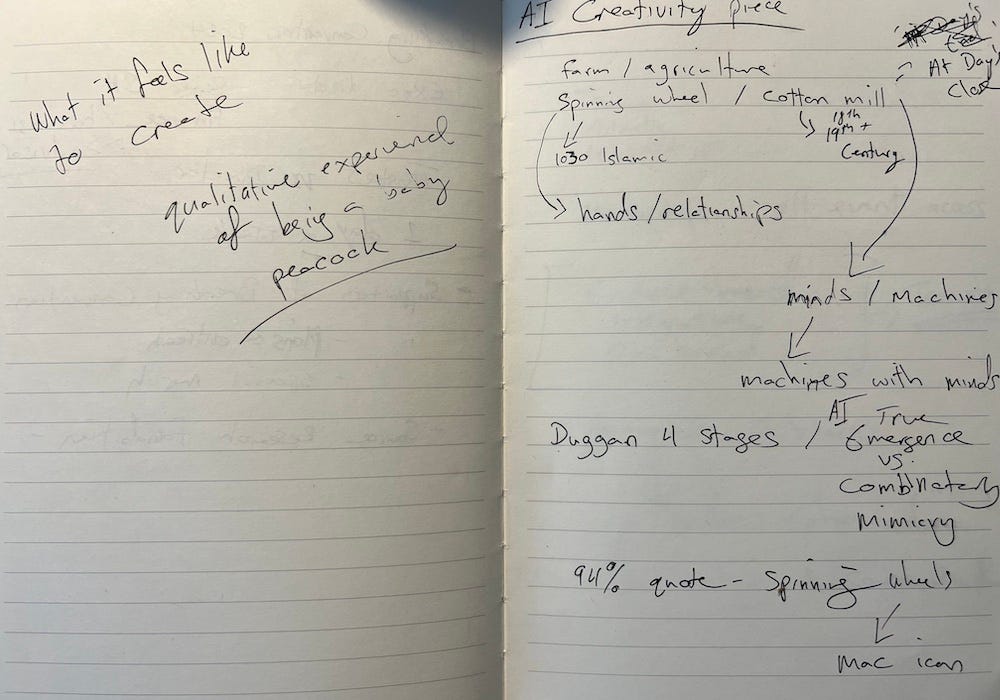 What it feels like
to create
qualitative experience
of being a baby
peacock
AI Creativity piece
farm / agriculture
At Day's
Close
Spinning wheel / Cotton mill
18th
19th +
Century
1030 Islamic
hands / relationships
minds / Machines
machines with minds
Duggan 4 stages / AI True
Emergence
vs.
Combinatory
Mimicry
94% quote - Spinning wheels
Mac icon